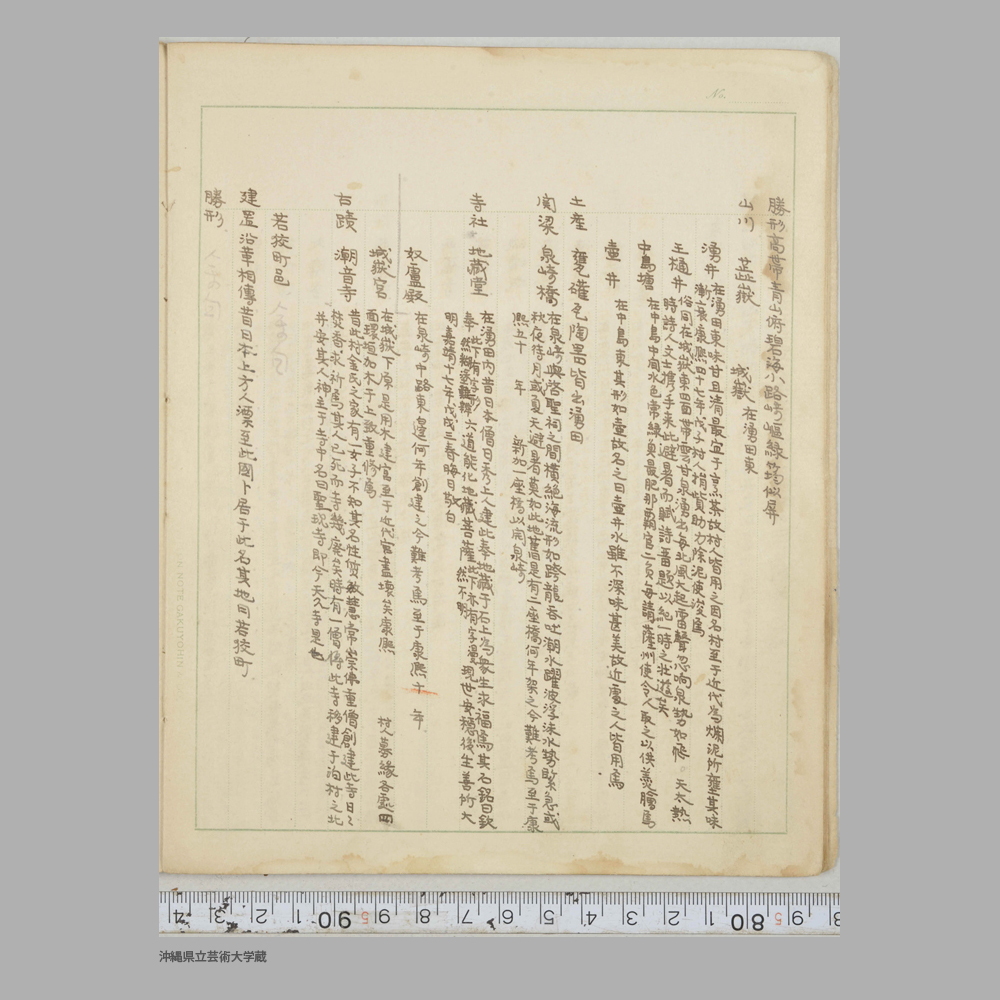 No.
勝形 高帯青山俯碧海小路崎嶇緑蕩似屏
山川 莊嶽 城嶽 在湧田東
湧井 在湧田東味甘且清最宜于烹茶故村人皆用之因名村至于近代為爛泥所壅其味
漸衰康熙四十七年戊子村人捐貲助力除泥使浚焉
王樋井 俗同在城嶽東四面帯雲甘泉湧出每北風大起雷聲忽响泉勢如 天太熱
時詩人文士携手来此避暑而賦詩畨題以紀一時之壮遊矣
中島塘 在中島中間水色常緑魚最肥那覇官二員每請薩州使令人取之以供羮膾焉
壷井 在中島東其形如壷故名之曰壷井水雖不深味甚美故近處之人皆用焉
土産 甕 罐 瓦 陶噐皆出湧田
関梁 泉崎橋 在泉崎與啓聖祠之間横絶海流形如跨龍吞吐潮水躍波浮沫水勢緊急或
秋夜待月或夏天避暑莫如此地舊是有二座橋何年架之今難考焉至于康
熙五十 年 新加一座橋以開泉崎
寺社 地蔵堂 在湧田内昔日本僧日秀上人建此奉地蔵于石上為衆生求福焉其石銘曰欽
奉 此下有字形然糊塗難辨 六道能化地蔵菩薩 此下亦有字漫然不明 現世安穏後生善所大
明嘉靖十七年戊戌三春晦日敬白
奴廬殿 在泉崎中路東邉何年創建之今難考焉至于康熙 十 年
城嶽宮 在城嶽下原是用木建宮至于近代宮盡壊矣康熙 枕募緣各處四
面環垣加木于上致重修焉
古蹟 潮音寺 昔此村金氏之家有一女子不知其名性質敏慧常崇佛重僧創建此寺日々
焚香求祈焉其人已死而寺幾廃矣時有一僧傳此寺移建于泊村之北
并安其人神主于寺中名曰聖現寺即今天久寺是也
若狡町邑
建置沿革 相傳昔日本上方人漂至此國卜居于此名其地曰若狡町
勝形
沖縄県立芸術大学蔵